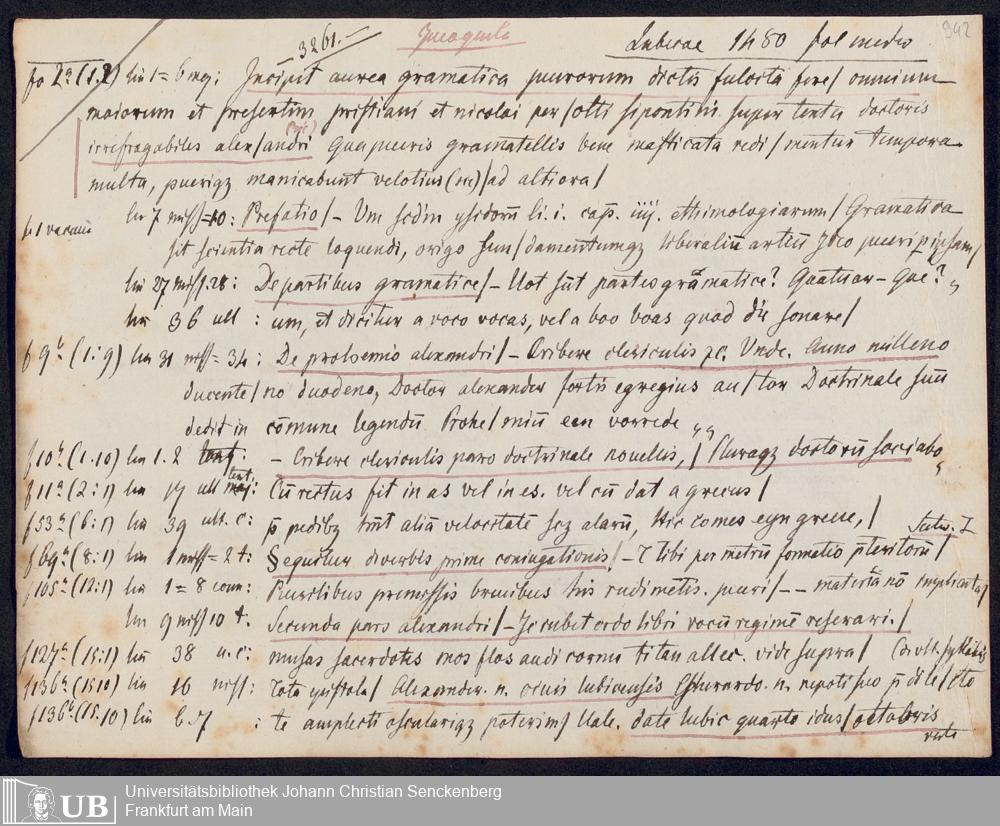 3261.- Incognita Lubecae 1480 fol medio 942
fo 2ᵃ (1.2) lin 1 = 6 mg: Incipit aurea gramatica puerorum dictis fulcita fere/ omnium
maiorum et presertim prisciani et nicolai per/otti sipontini super textu doctoris
irrefragabiles alex/andri (sic) Qua pueris gramatellis bene masticata redi/mentur tempora
multa, puerigz manicabunt velotius (sic)/ad altiora/
f 1 vacuum lin 7 miss = 10: Prefatio/ – Um scdm ysidorū li. i. cap. iiij. ethimologiarum/ Gramatica
sit scientia recte loquendi, origo fun/damentumqz liberaliū artiū
lin 27 miss. 28: De partibus gramatice/ – Uot sūt partes gramatice? Quatuor – Que?
lin 36 ult : um, et dicitur a voco vocas, vel a boo boas quod est sonare/
f 9ᵇ (1:9) lin 31 miss = 34: De prohemio alexandri/ – Cribere clericulis zc. Unde. Anno milleno
ducente/no duodeno, Doctor alexander fortis egregius au/tor Doctrinale suū
dedit in cōmune legendū Prohe/miū een vorrede
f 10ᵇ (1.10) lin 1. 2 text: – Cribere clericulis paro doctrinale nouellis,/ Pluraqz doctorū sociabo
f 11ᵃ (2:1) lin 17 ult text: Cū rectus fit in as vel in es. vel cū dat a grecus/
f 53ᵃ (6:1) lin 39 ult. c: p̄ pedibz hn̄t aliā velocitatē scz alarū, Hic comes eyn greue,/
f 69ᵃ (8:1) lin 1 miss = 2 t: Sequitur de verbis prime coniugationis/ – I libi per metrū formatio p̄teritorū/
f 105ᵃ (12:1) lin 1 = 8 com: Puerilibus premissis breuibus hiis rudimētis. pueri/ – – materia nō implicantes/
lin 9 miss 10 t. Secunda pars alexandri/ – Ic iubet ordo libri vocū regimē reserari./
f 127ᵃ (15:1) lin 38 u. c: musas sacerdotes mos flos audi cornu titan allec. vide supra/
f 136ᵃ (15:10) lin 16 miss: Tota epistola/ Alexander. n. ciuis lubicensis Eshwardo. n. nepoti suo p̄ dile/cto
f 136ᵇ (15.10) lin 6.7 : te amplecti oscularigz poterim/ Uale. date lubic quarto idus/octobris
verte
Universitätsbibliothek Johann Christian Senckenberg
UB Frankfurt am Main